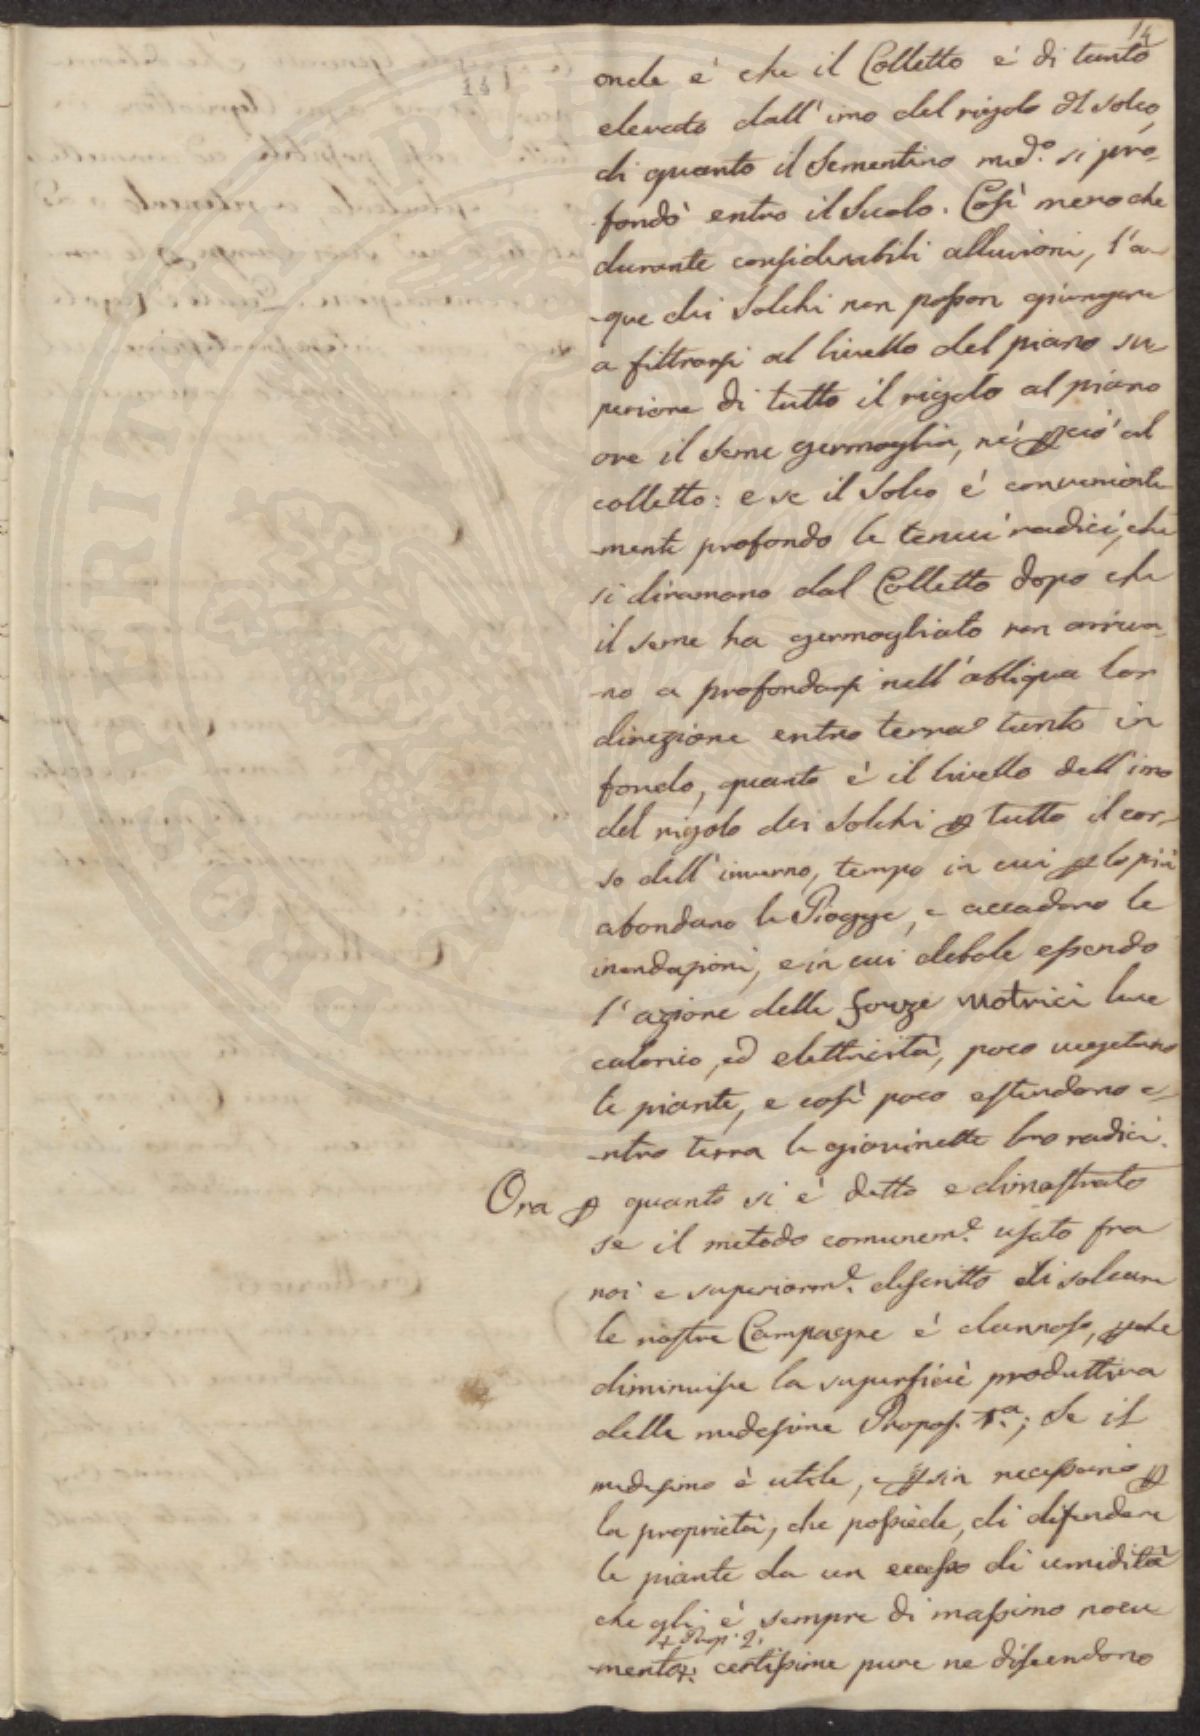 14
onde e' che il Colletto e' di tanto
elevato dall' imo del rigolo del solco,
di quanto il Sementino med.o si pro-
fondò entro il Suolo. Così meno che
durante considerabili alluvioni, l'a-
-que dei Solchi non posson giungere
a filtrarsi al livello del piano su-
periore di tutto il rigolo al piano
ove il seme germoglia, nè pciò al
colletto: e se il Solco è conveniente
-mente profondo le tenui radici, che
si diramano dal Colletto dopo che
il seme ha germogliato non arriva-
-no a profondarsi nell' obliqua lor
direzione entro terra tanto in
fondo, quanto è il livello dell' imo
del rigolo dei Solchi p tutto il cor-
so dell' inverno, tempo in cui p lo più
abondano le Piogge, e accadono le
inondazioni, e in cui debole essendo
l' azione delle forze motrici luce
calorico, ed elettricità, poco vegetano
le piante, e così poco estendono e-
-ntro terra le giovinette loro radici.
Ora p quanto si è detto e dimostrato
se il metodo comunem.e usato fra
noi e superiorm.e descritto di solcare
le nostre Campagne è dannoso, pche
diminuisce la superficie produttiva
delle medesime Propos. 1.a; Se il
medesimo è utile, e psin necessario p
la proprietà, che possiede, di difendere
le piante da un eccesso di umidità
che gli è sempre di massimo nocu-
+ Prop. 2.
-mento+: certissime pure ne discendono